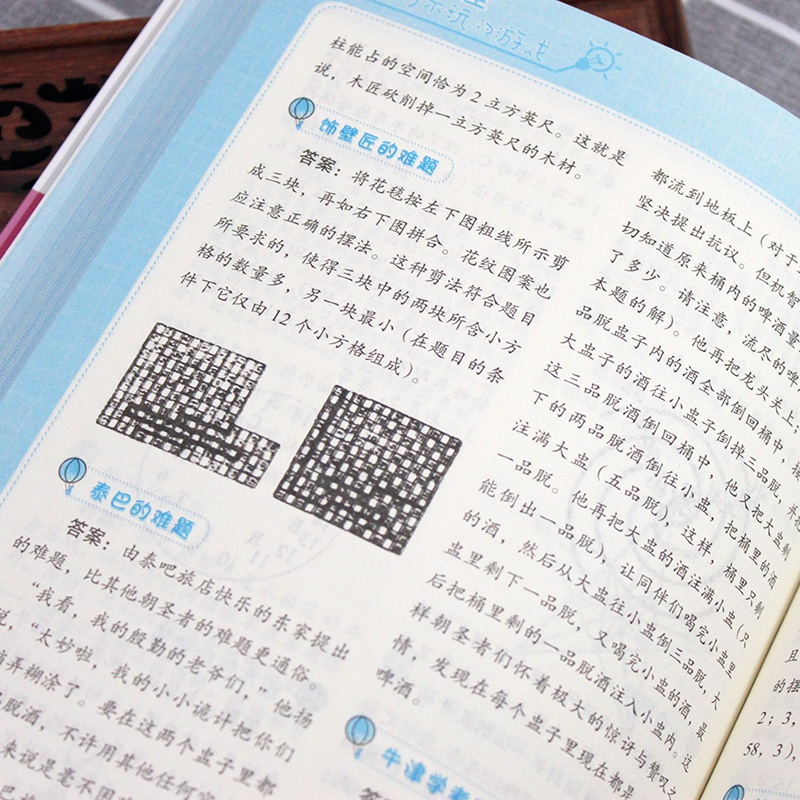 你玩的游戏
柱能占的空间恰为2立方英尺。这就是
说，木匠砍削掉一立方英尺的木材。
饰壁匠的难题
答案：将花毯按左下图粗线所示剪
成三块，再如右下图拼合。花纹图案也
应注意正确的摆法。这种剪法符合题目
所要求的，使得三块中的两块所含小方
格的数量多，另一块最小（在题目的条
件下它仅由12个小方格组成）。
泰巴的难题
答案：由泰吧旅店快乐的东家提出
的难题，比其他朝圣者的难题更通俗。
“我看，我的殷勤的老爷们，”他扬
说，“太妙啦，我的小小诡计把你们
弄糊涂了。要在这两个盅子里都
脱酒，不许用其他任何容
来说是毫不困
都流到地板上（对于
坚决提出抗议。但机智
切知道原来桶内的啤酒量
了多少。请注意，流尽的啤
本题的解）。他再把龙头关上；
品脱盅子内的酒全部倒回桶中，接
大盅子的酒往小盅子倒掉三品脱，并
这三品脱酒倒回桶中，他又把大盅剩
下的两品脱酒倒往小盅，把桶里的酒
注满大盅（五品脱），这样，桶里只剩
一品脱。他再把大盅的酒注满小盅（只
能倒出一品脱），让同伴们喝完小盅里
的酒，然后从大盅往小盅倒三品脱，大
盅里剩下一品脱，又喝完小盅的酒，最
后把桶里剩的一品脱酒注入小盅内。这
样朝圣者们怀着极大的惊讶与赞叹之
情，发现在每个盅子里现在都是
啤酒。
牛津学者
答案
且
的摆
2；3，
58，3），